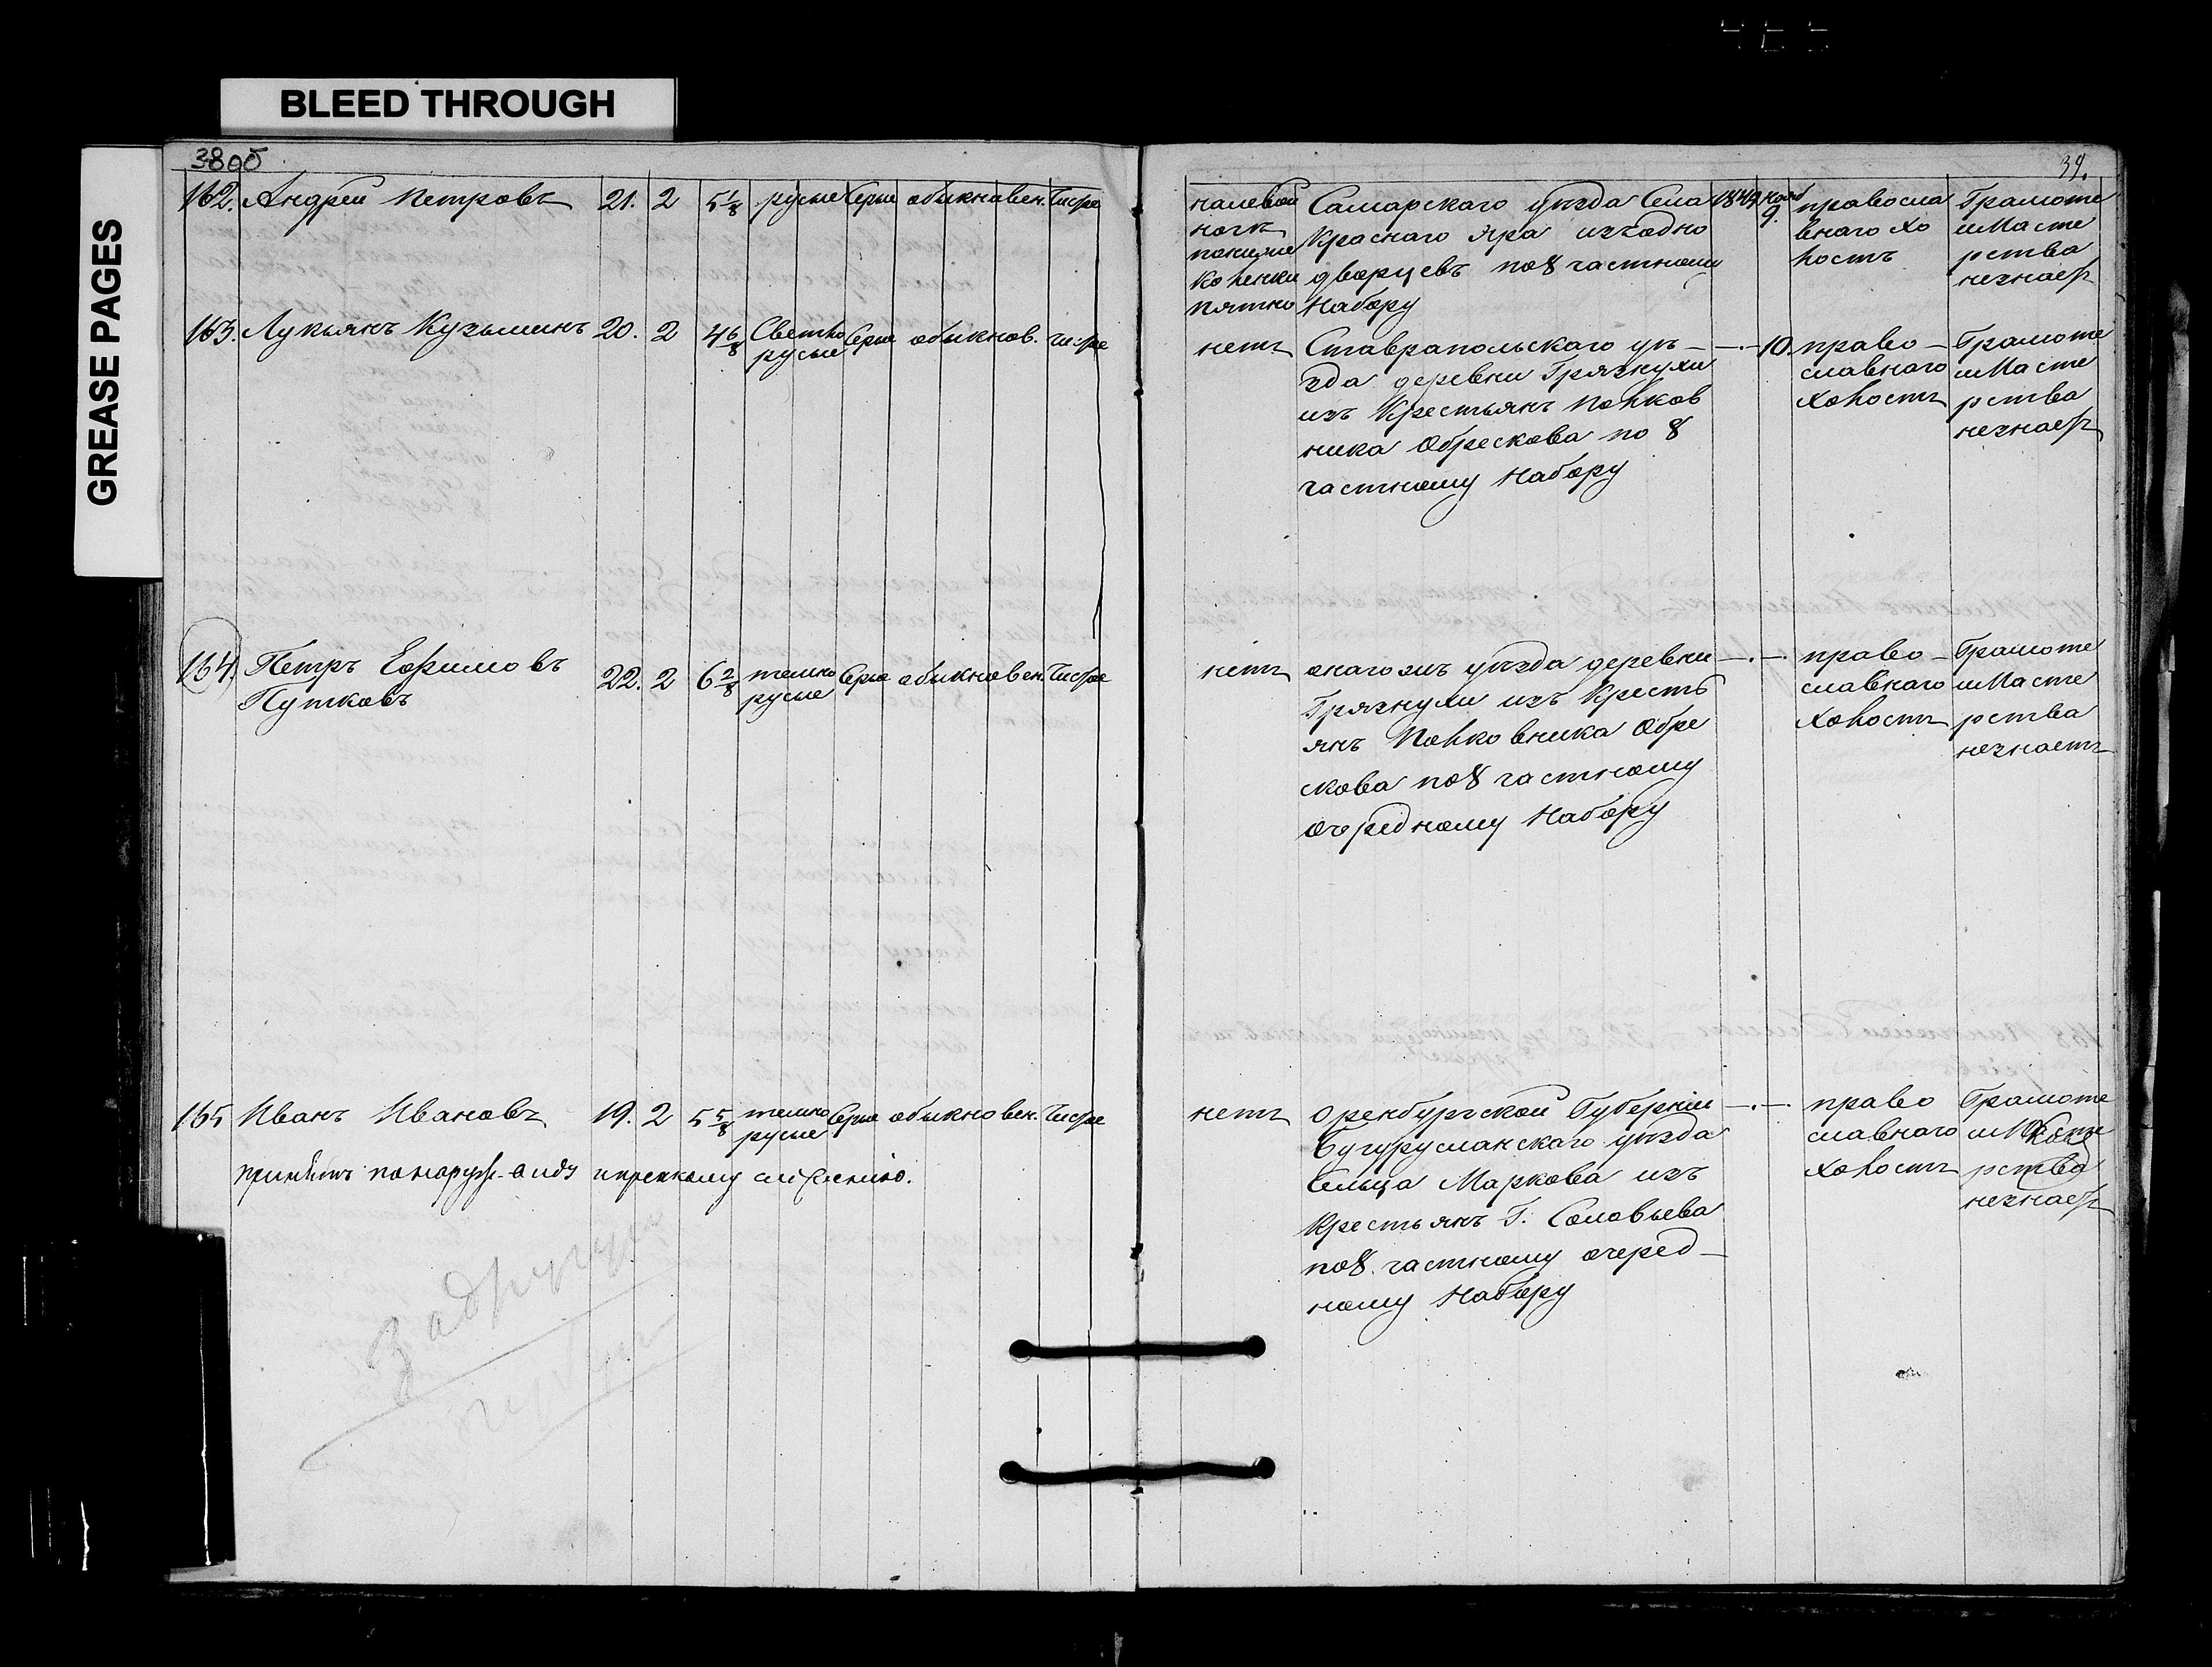 BLEED THROUGH
GREASE PAGES
38 об
39.
162. Андрей Петровъ 21. 2 5 1/8 русые Серые обыкновен. Чистое
на левой
ноге
пониже
коленки
пятно
Самарскаго уѣзда Села
Краснаго Яра изъ одно
дворцевъ по 8 частному
Набору
1849 нояб 9.
православ
внаго хо
лостъ
Грамоте
и Масте
рства
незнает
163. Лукьянъ Кузьминъ 20. 2 4 6/8 Светло Серые обыкнов. чистое
русые
нетъ
Ставрапольскаго уѣ-
зда деревни Грязнухи
изъ Крестьянъ Полков
ника Обрескова по 8
частному Набору
—·— 10.
право-
славнаго
холостъ
Грамоте
и Масте
рства
незнает
164. Петръ Ефимовъ 22. 2 6 2/8 темно Серые обыкновен. Чистое
Путковъ русые
нетъ
онагожъ уѣзда деревни
Грязнухи изъ Кресть
янъ Полковника Обре
скова по 8 частному
очередному Набору
—·—
право-
славнаго
холостъ
Грамоте
и Масте
рства
незнаетъ
165 Иванъ Ивановъ 19. 2 5 5/8 темно Серые обыкновен. Чистое
русые
принятъ по наруж. виду и крепкому сложенію.
нетъ
Оренбургской Губерніи
Бугурусланскаго уѣзда
Сельца Маркова изъ
Крестьянъ Г. Соловьева
по 8. частному очеред-
ному Набору
—·—
право
славнаго
холостъ
Грамоте
и Масте
рства
незнает